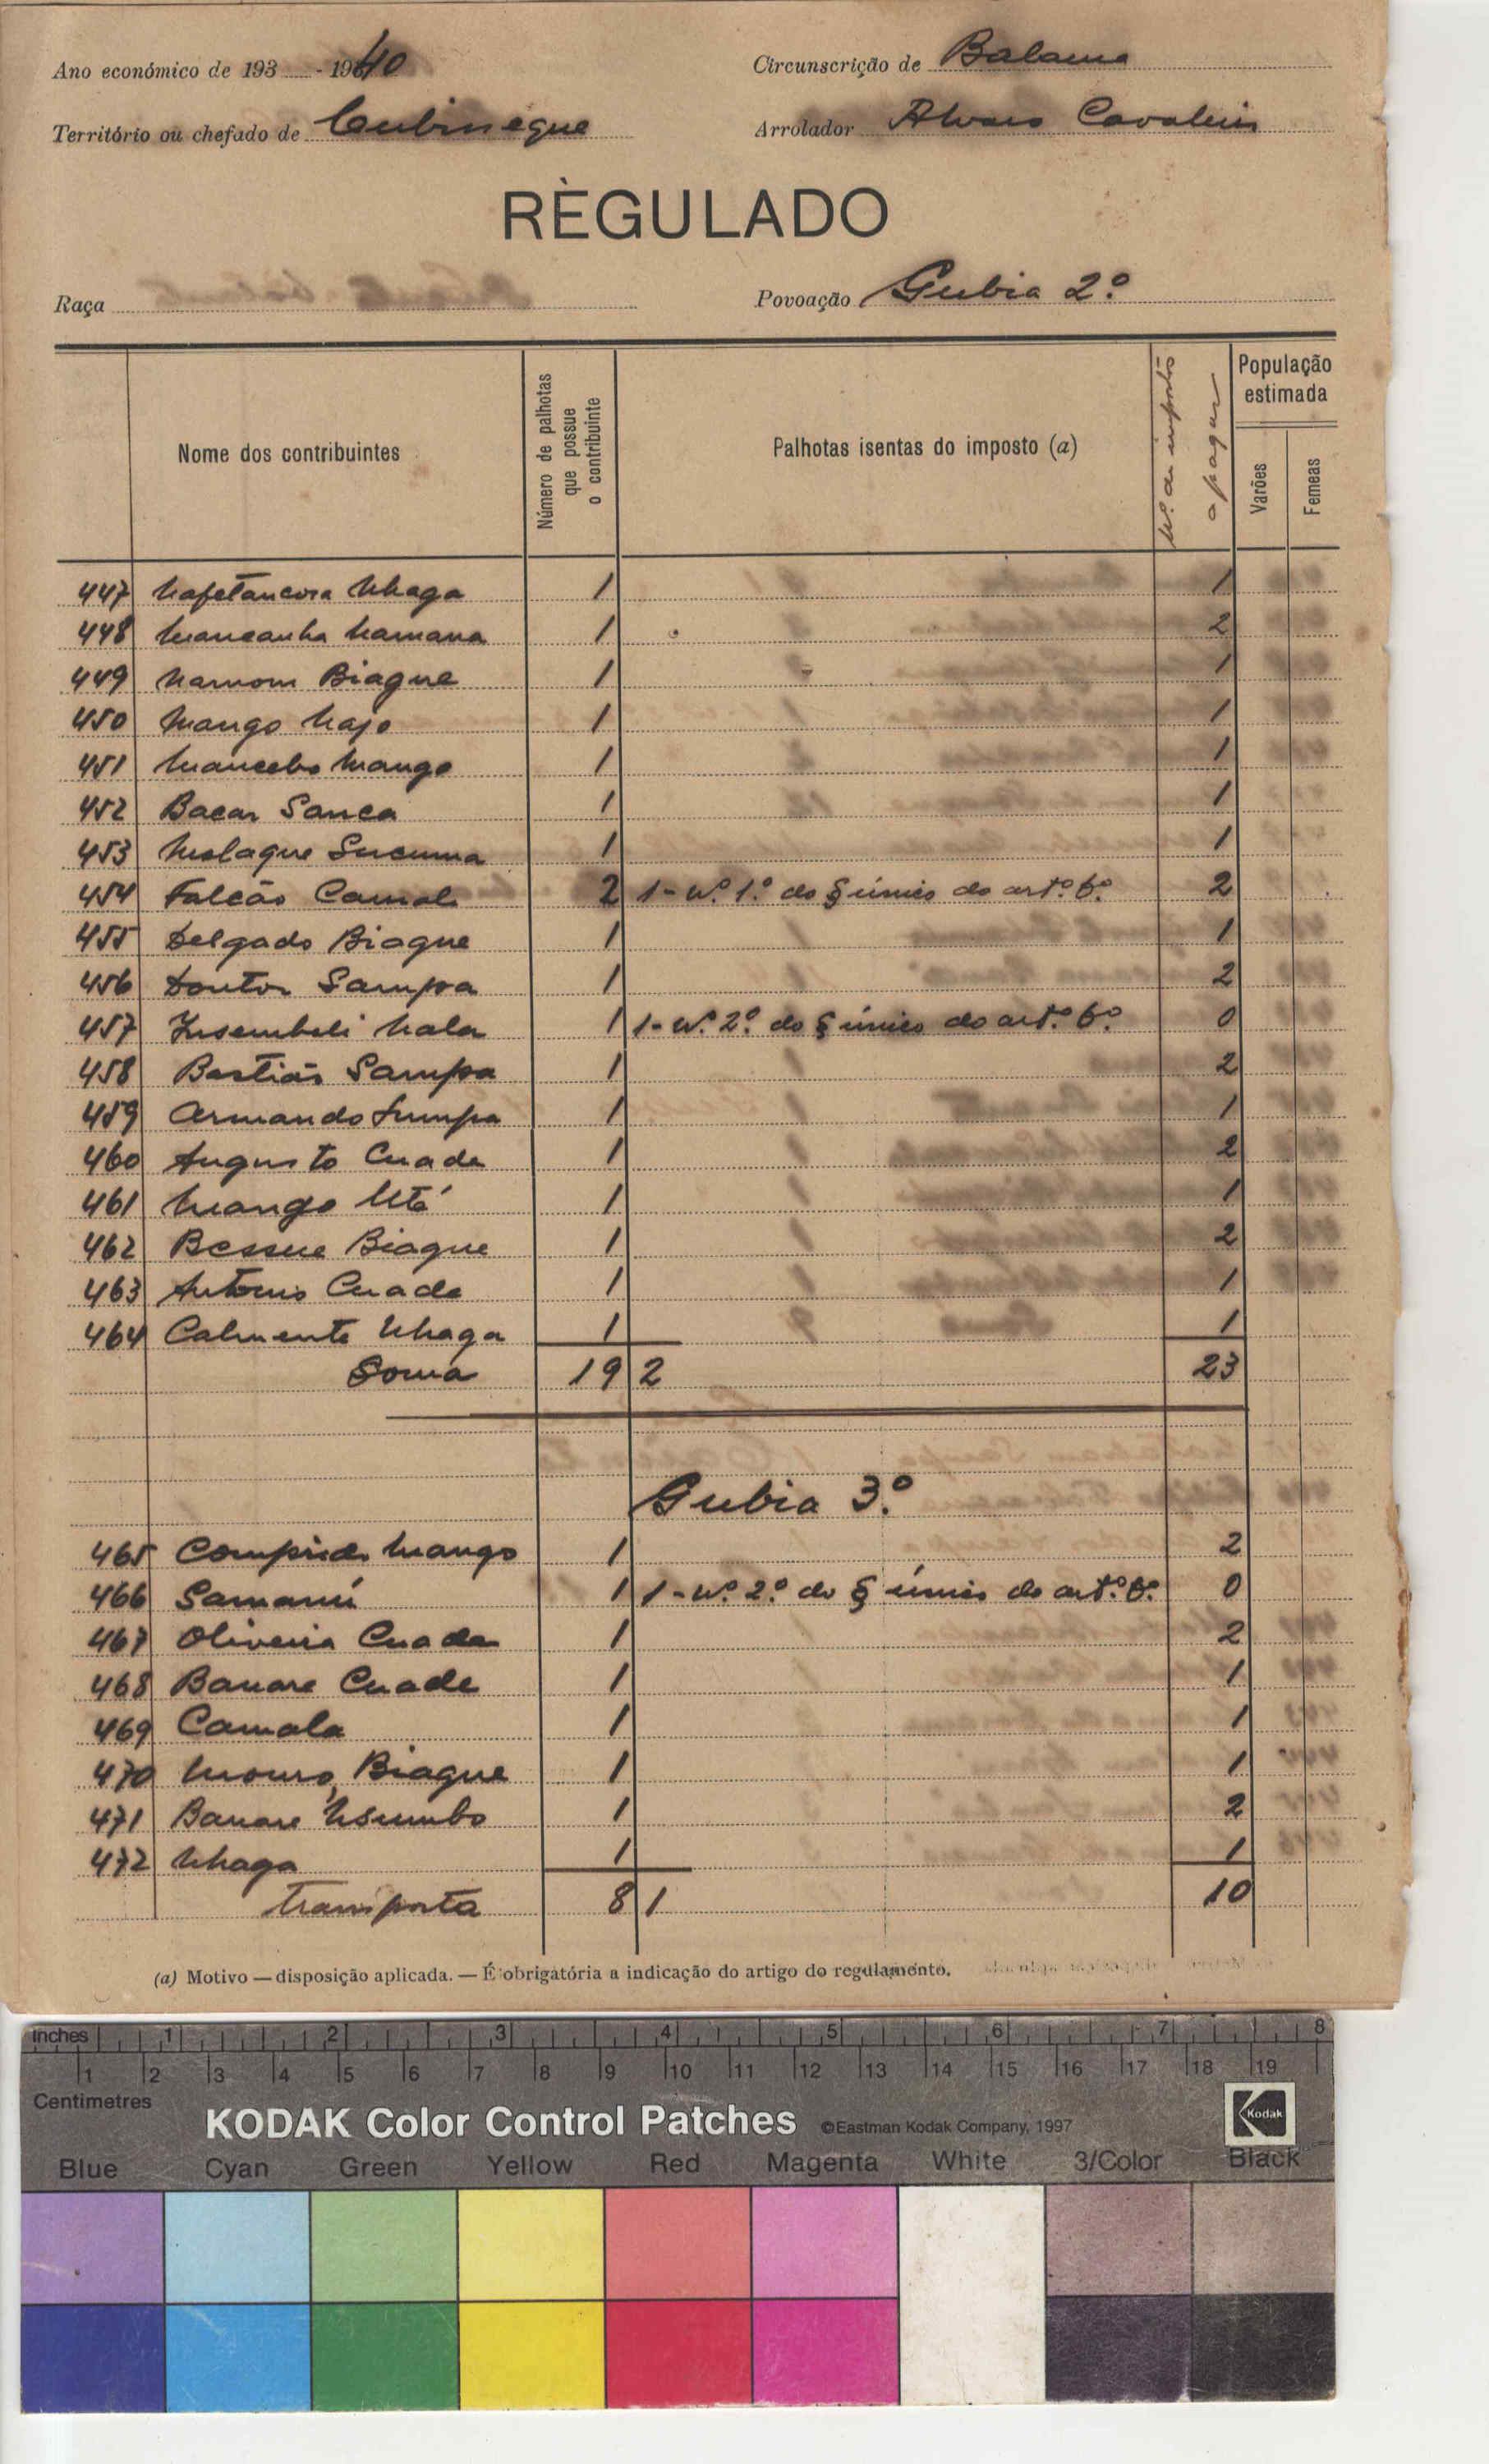 Ano económico de 193 - 1940
Circunscrição de Balama
Território ou chefado de Cubineque
Arrolador Alvaro Cavaleiro
RÈGULADO
Raça
Povoação Gubia 2.º
Nome dos contribuintes
Número de palhotas que possue o contribuinte
Palhotas isentas do imposto (a)
N.º de impostos a pagar
População estimada
Varões
Femeas
447 Nhaga 1 1
448 Mancanha Namana 1 2
449 Namom Biague 1 1
450 Mango Najo 1 1
451 Mancebo Mango 1 1
452 Bacar Sanca 1 1
453 1 1
454 Falcão Camal 2 1 - N.º 1.º do § único do art.º 6.º 2
455 Delgado Biague 1 1
456 Doutor Sampa 1 2
457 Nala 1 1 - N.º 2.º do § único do art.º 6.º 0
458 Bastião Sampa 1 2
459 Armando Sampa 1 1
460 Augusto Cuade 1 2
461 Mango Utá 1 1
462 Bessue Biague 1 2
463 Antonio Cuade 1 1
464 Calmente Nhaga 1 1
Soma 19 2 23
Gubia 3.º
465 Comprido Mango 1 2
466 Samanú 1 1 - N.º 2.º do § único do art.º 6.º 0
467 Oliveira Cuade 1 2
468 Banare Cuade 1 1
469 Camala 1 1
470 Mouro Biague 1 1
471 Banare Nsumbo 1 2
472 Nhaga 1 1
Transporta 8 1 10
(a) Motivo — disposição aplicada. — É obrigatória a indicação do artigo do regulamento.
inches 1 2 3 4 5 6 7 8
1 2 3 4 5 6 7 8 9 10 11 12 13 14 15 16 17 18 19
Centimetres
KODAK Color Control Patches ©Eastman Kodak Company, 1997
Kodak
Blue Cyan Green Yellow Red Magenta White 3/Color Black